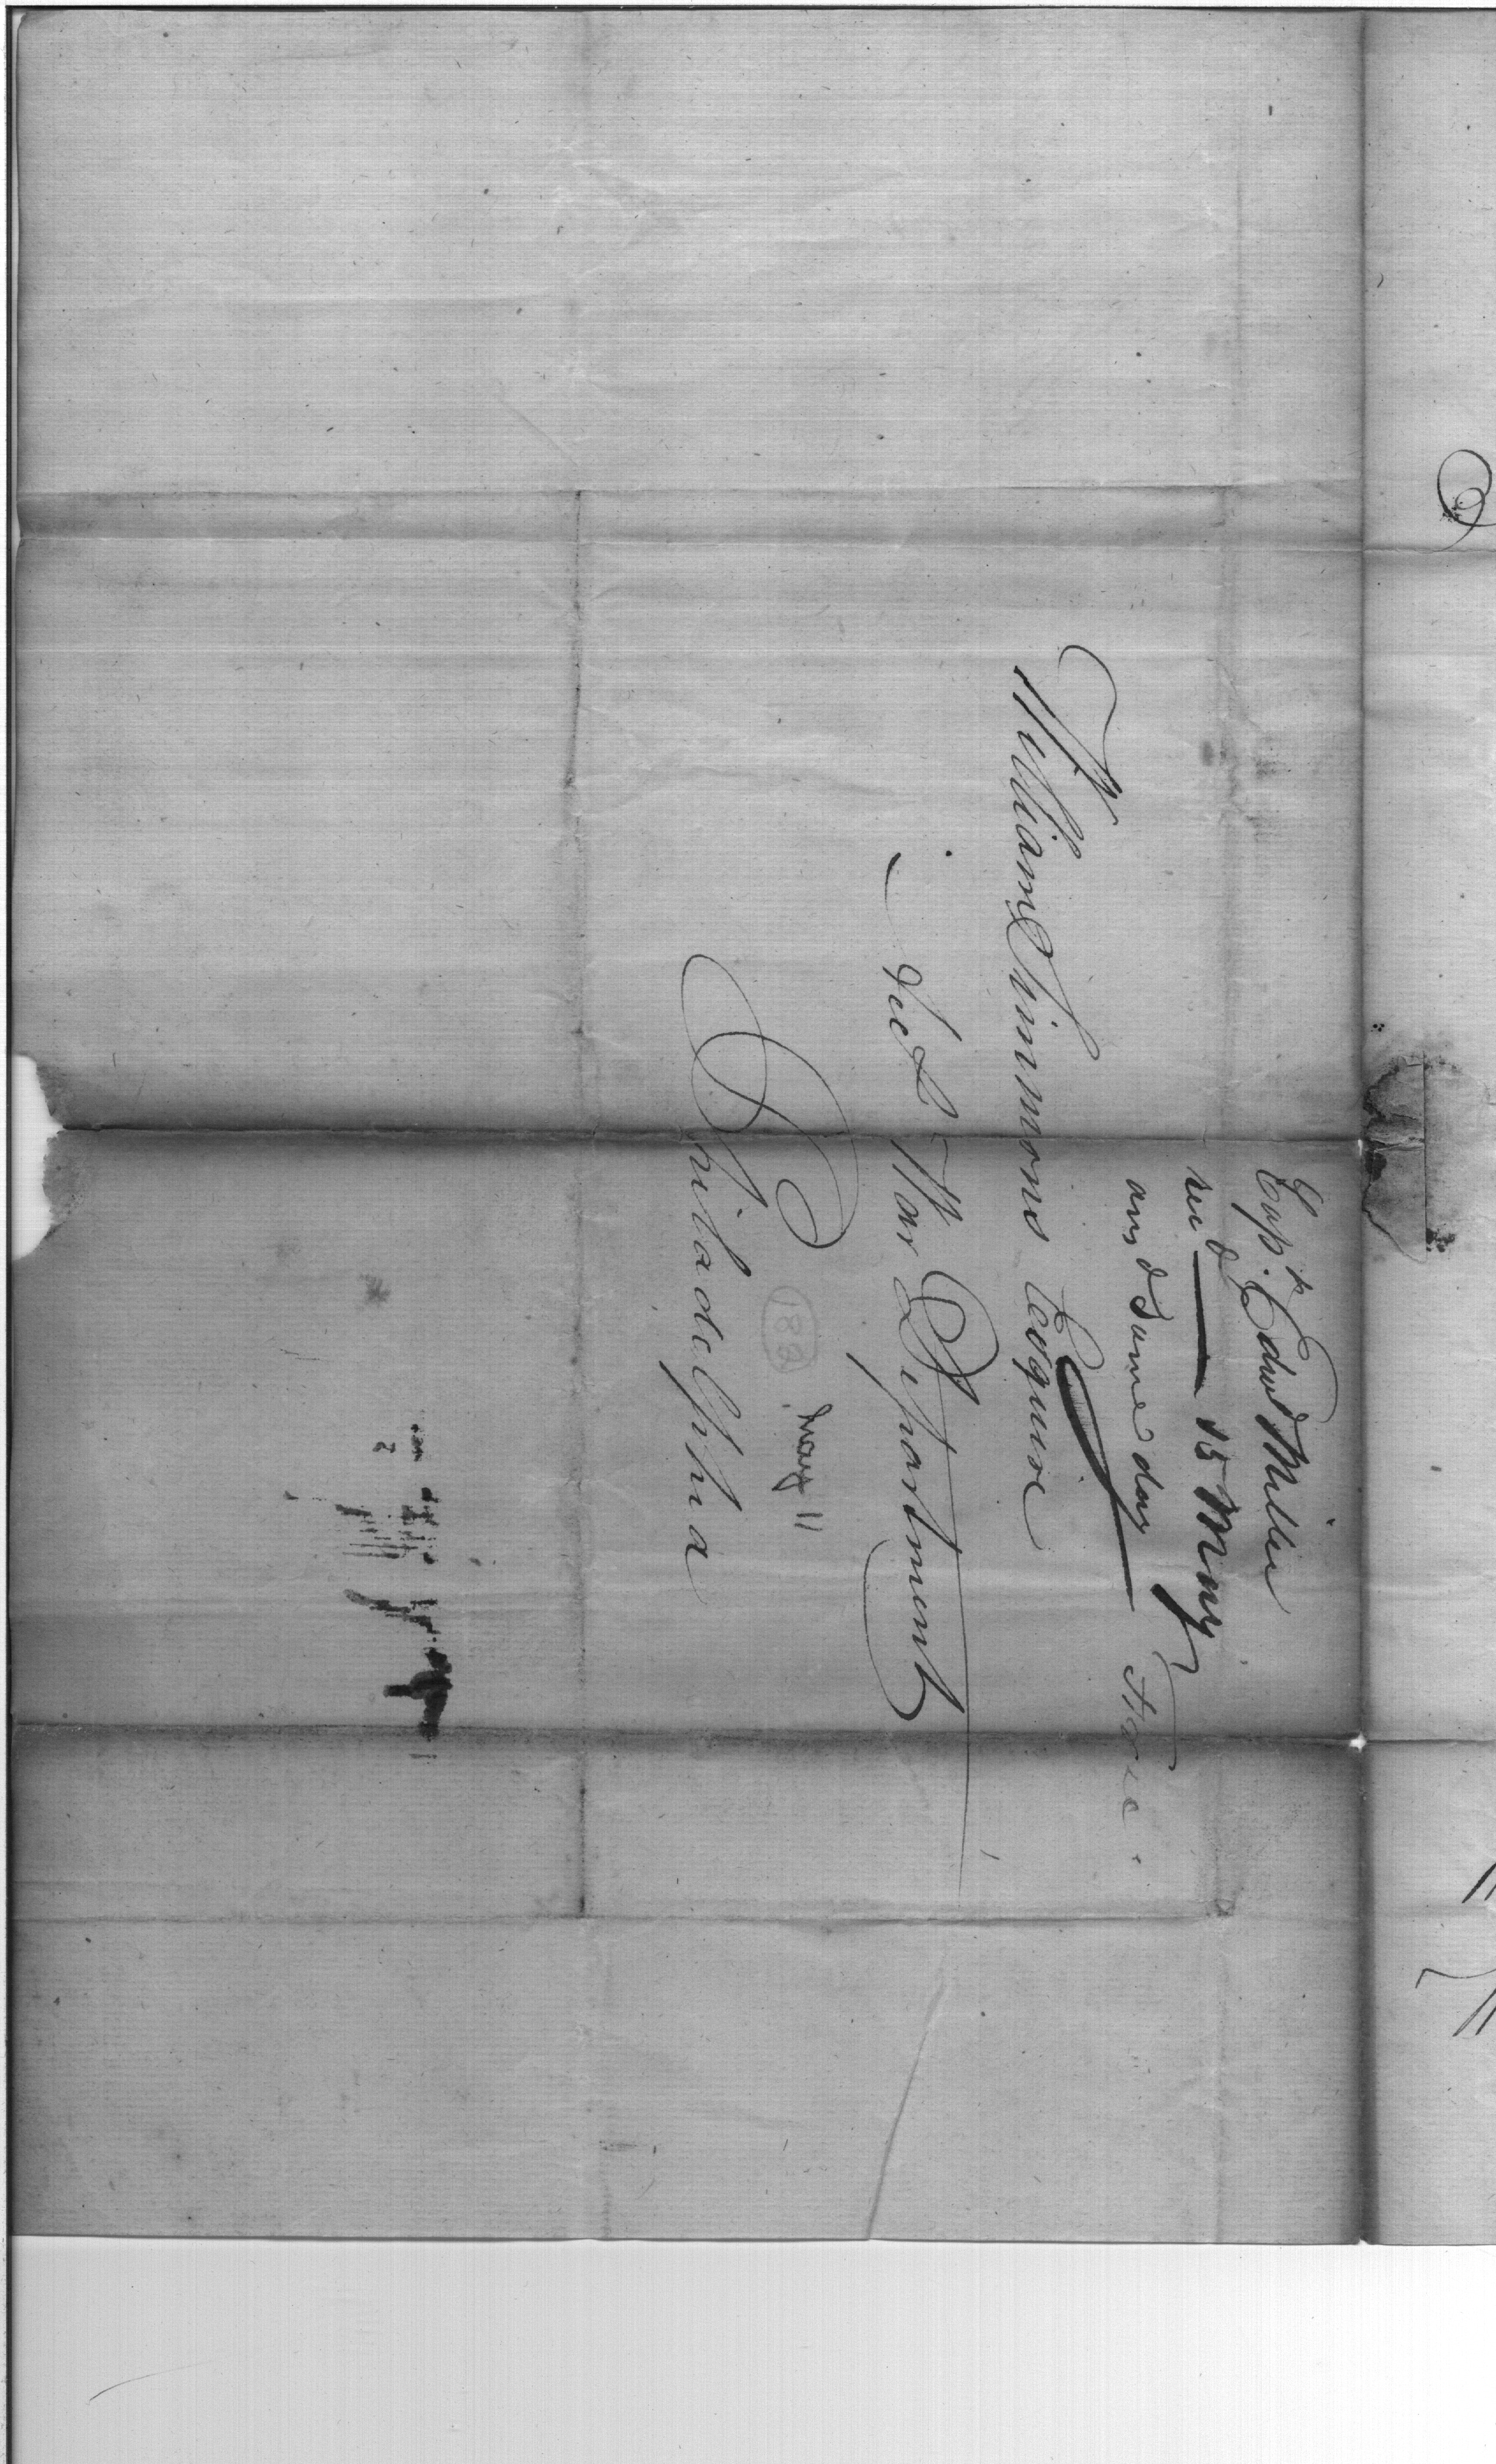 Capt. Edwd Miller
recd — 15 May
ansd same day
William Simmons Esquire
War Department
Philadelphia
May 11
188